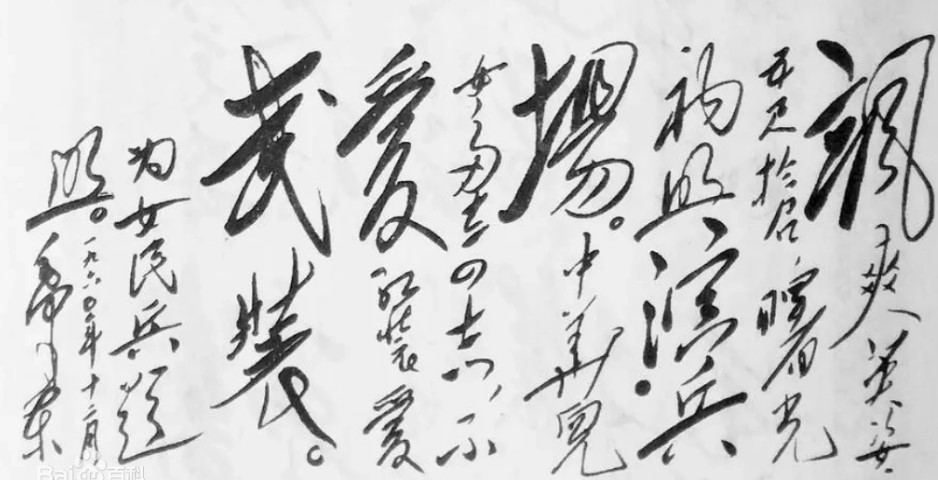 颯爽英姿
五尺枪曙光
初照演兵
場。中華兒
女多奇志,不
爱紅装爱
武装。
为女民兵题
照。
一九六〇年十二月
毛泽东
Bai 百科